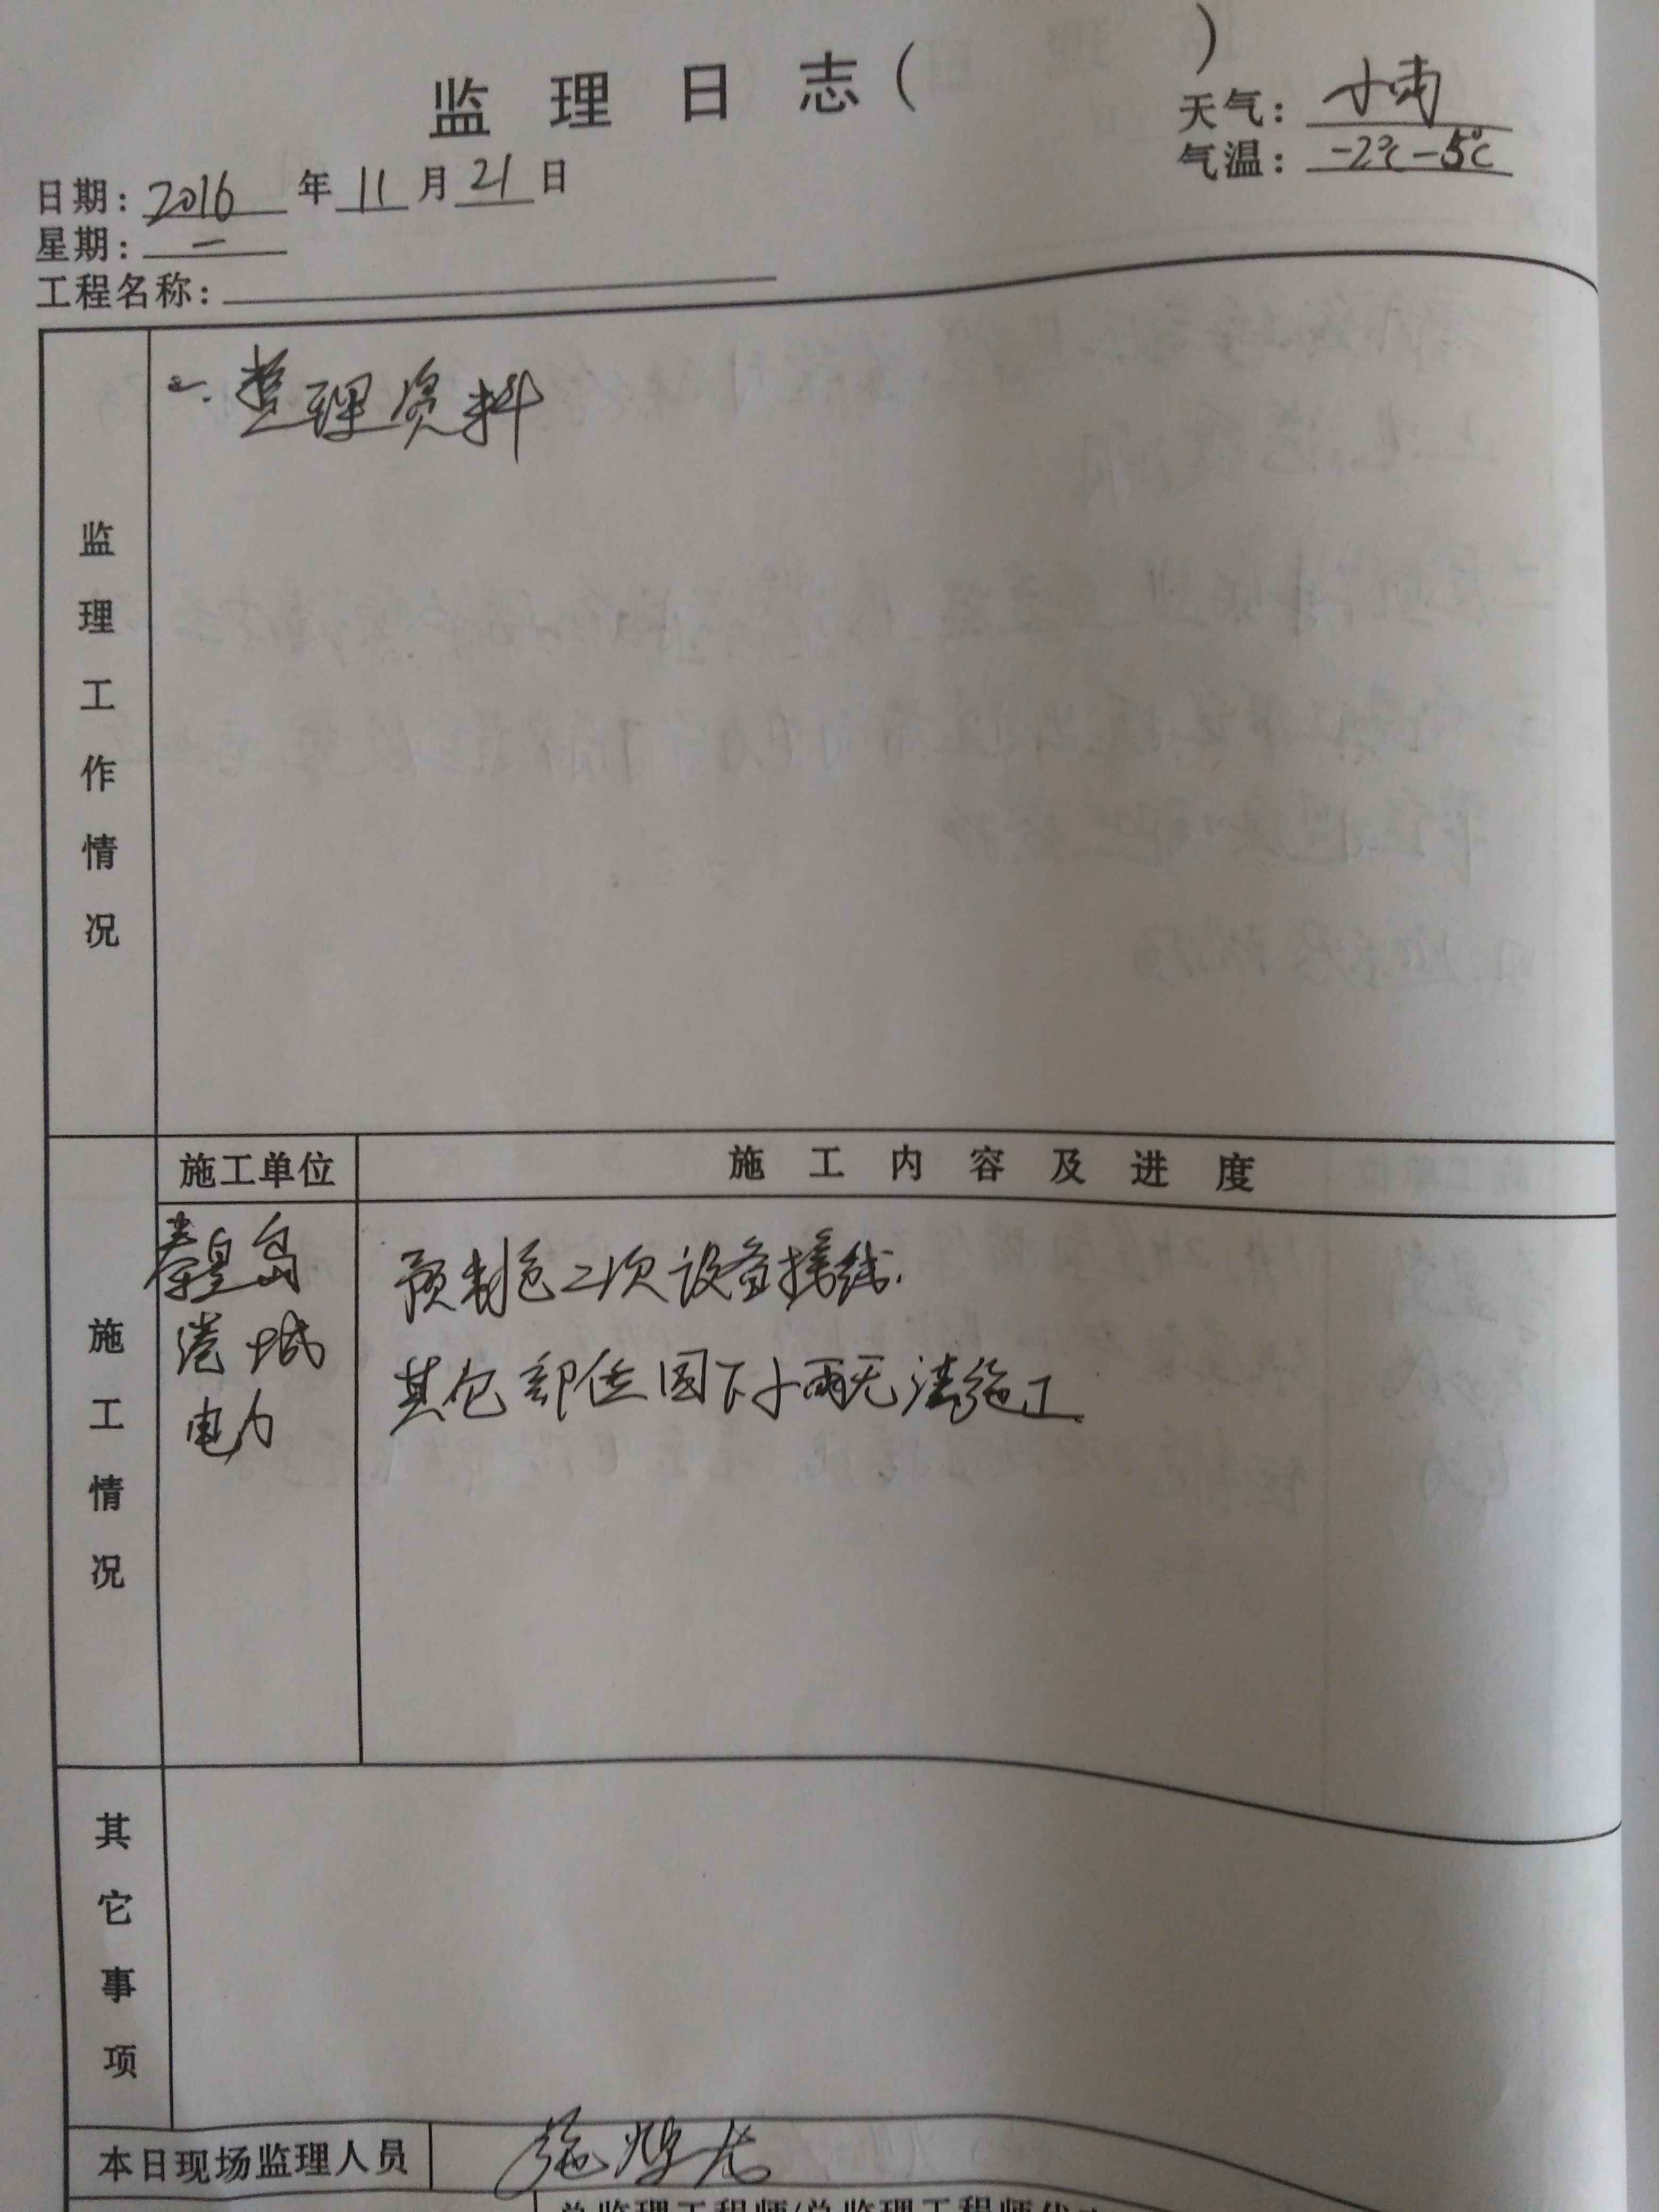 监理日志（ ）
天气：小雨
气温：-2℃-5℃
日期：2016年11月21日
星期：一
工程名称：
监理工作情况
一.整理资料
施工情况
施工单位
施工内容及进度
秦皇岛
港城
电力
预制仓二次设备接线.
其它部位因下小雨无法施工
其它事项
本日现场监理人员